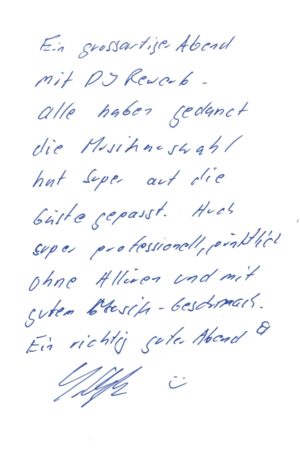 Ein grossartiger Abend
mit DJ Rewerb -
alle haben gedanct
die Musikauswahl
hat super auf die
Gäste gepasst. Auch
super professionell, pünktlich
ohne Allüren und mit
gutem Musik-Geschmack.
Ein richtig guter Abend